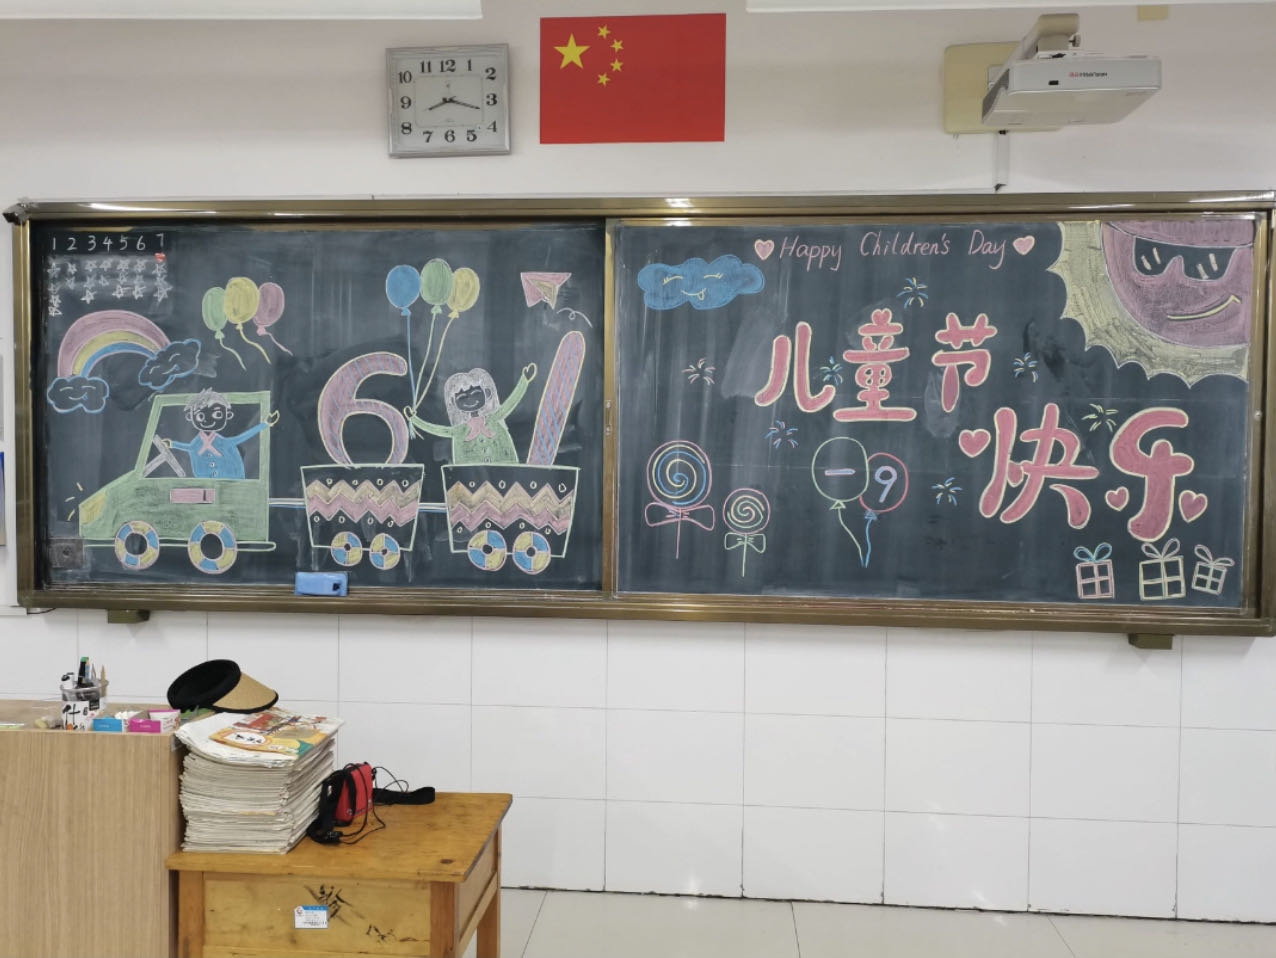 11 12 1
10 2
9 3
8 4
7 6 5
1 2 3 4 5 6 7
6 1
Happy Children's Day
儿童节
快乐
一 9